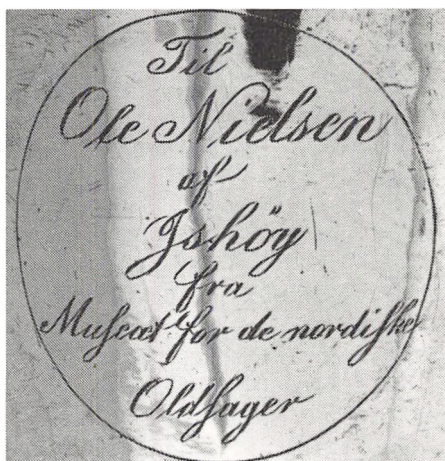 Til
Ole Nielsen
af
Ishöy
fra
Muſeet for de nordiſke
Oldſager